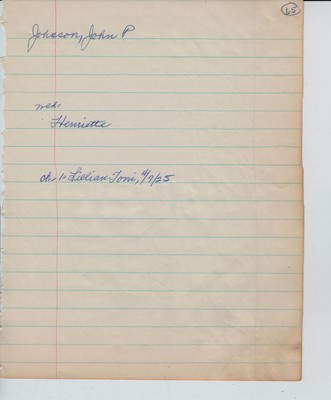 65
Johnson, John P
weds
Henriette
ch 1. Lillian Toni, 4/9/25